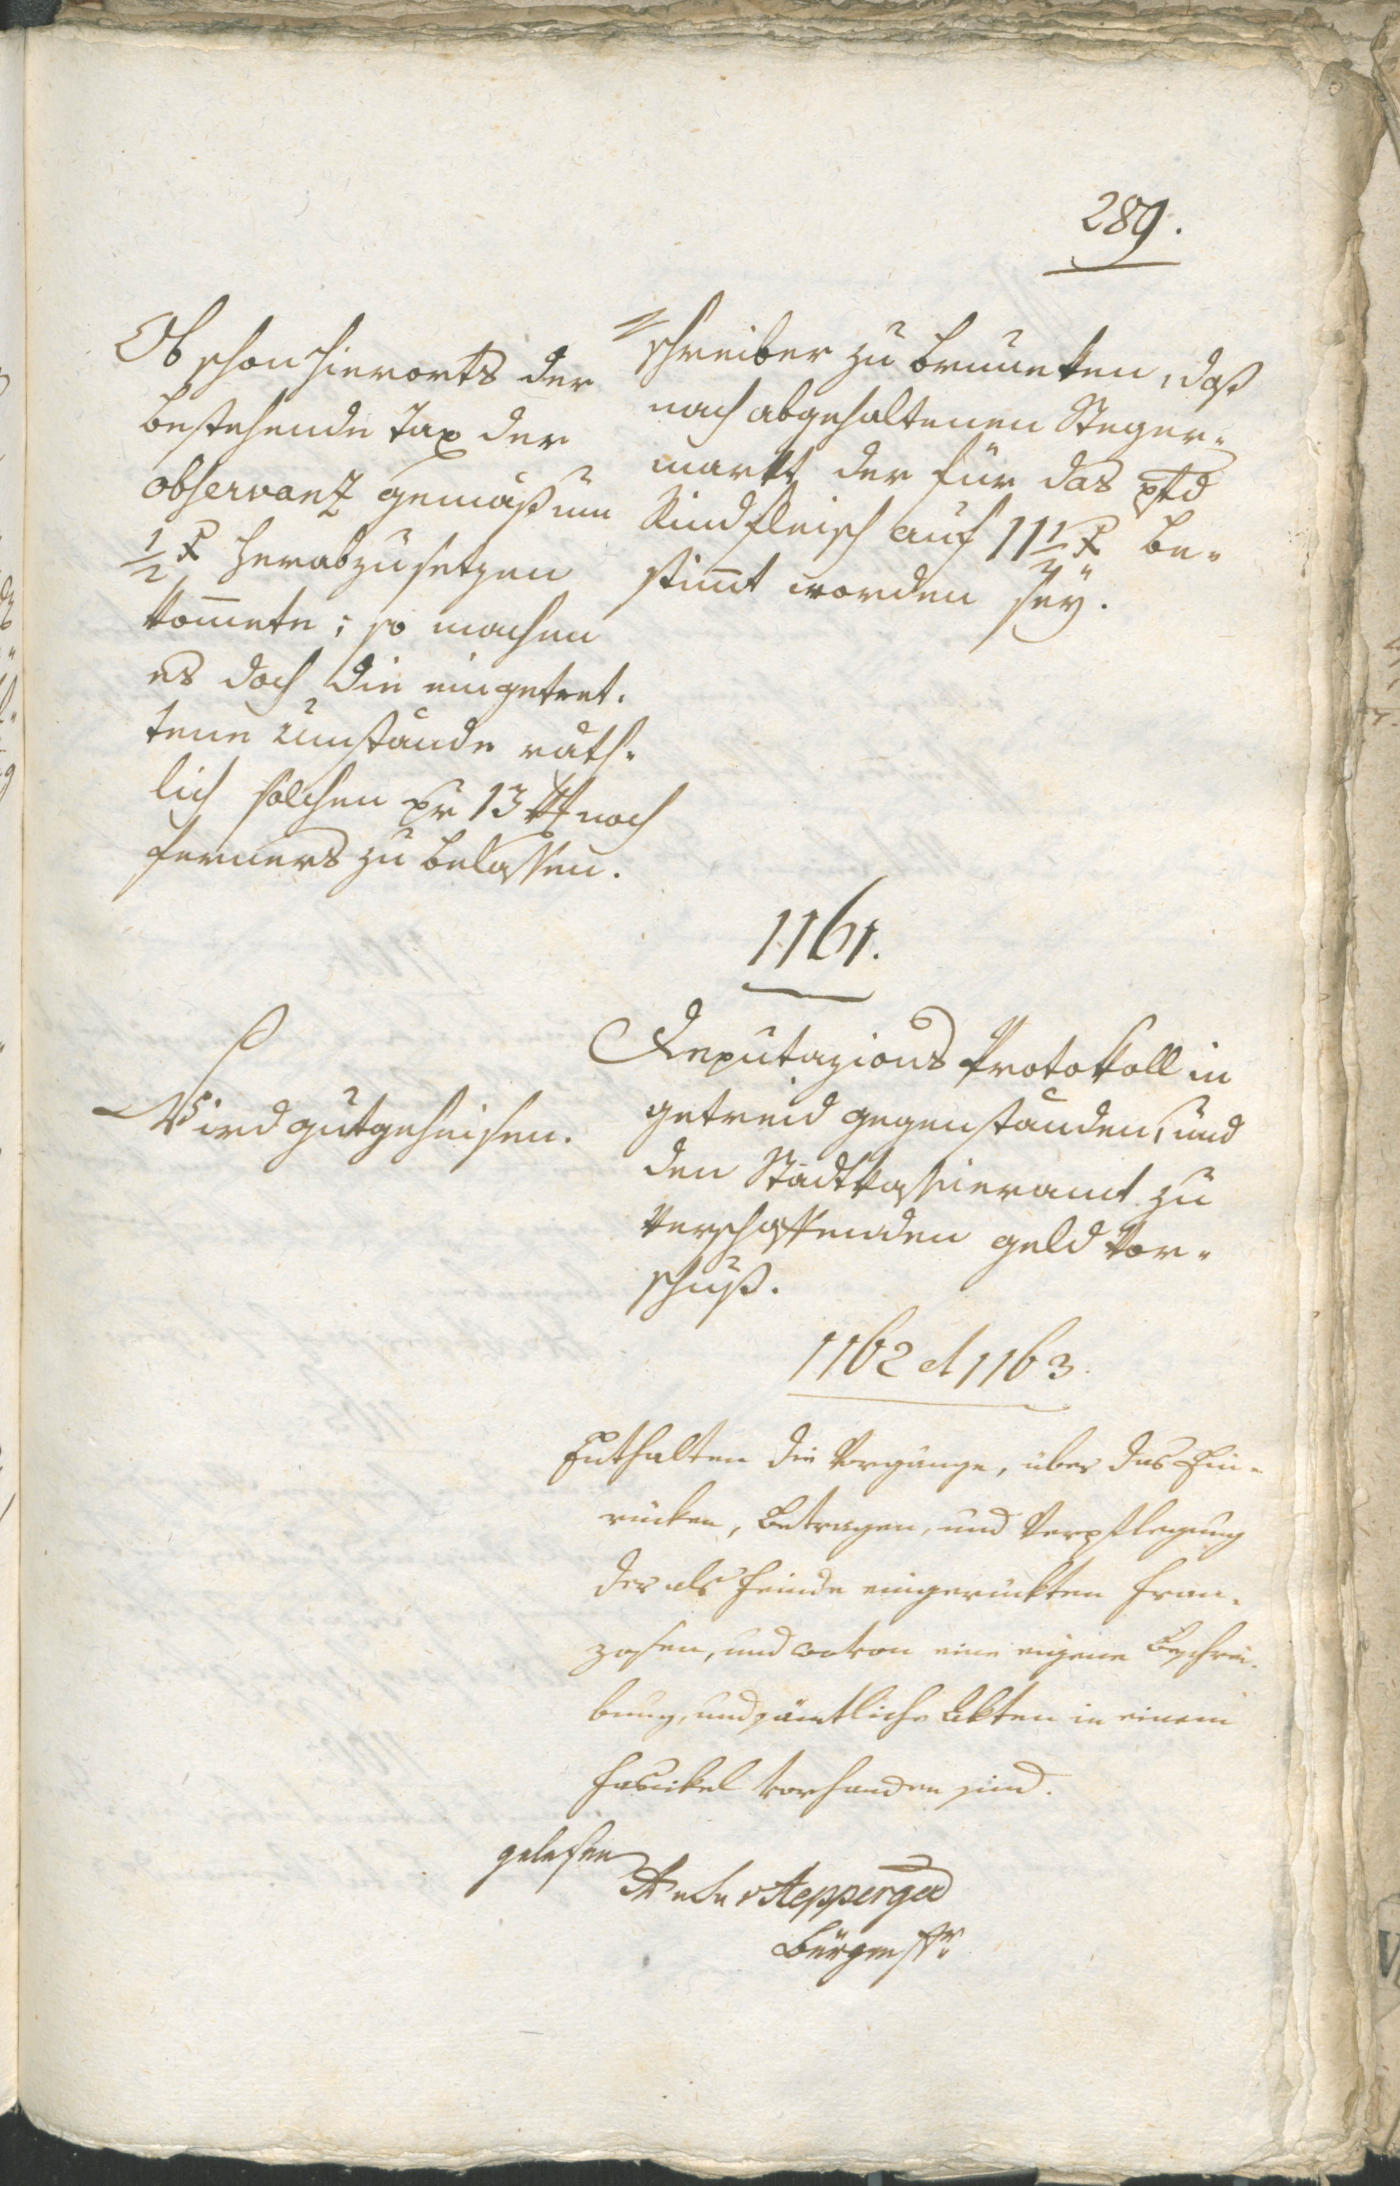 289.
Obschon hierorts der
bestehende Tax der
observanz gemäß um
1/2 x herabzusetzen
kom̄ete; so machen
es doch die eingetret-
tene Umstände räth-
lich solchen pr 13 noch
ferners zu belassen.
schreiber zu Brunecken, daß
nach abgehaltenen Steger-
markt der für das pfd
Rindfleisch auf 11 1/2 x be-
stim̄t worden sey.
1161.
Deputazions Protokoll in
getreid gegenständen, und
den Stadtkassieramt zu
verschaffenden geld Vor-
schuß.
Wird gutgeheisen.
1162 et 1163.
Enthalten die Vorgänge, über das Ein-
rücken, Betragen, und Verpflegung
der als Feinde eingerückten Fran-
zosen, und wovon eine eigene Beschrei-
bung, und sämtliche Akten in einem
Fascikel vorhanden sind.
gelesen
v Aepperger
Bürgerstr